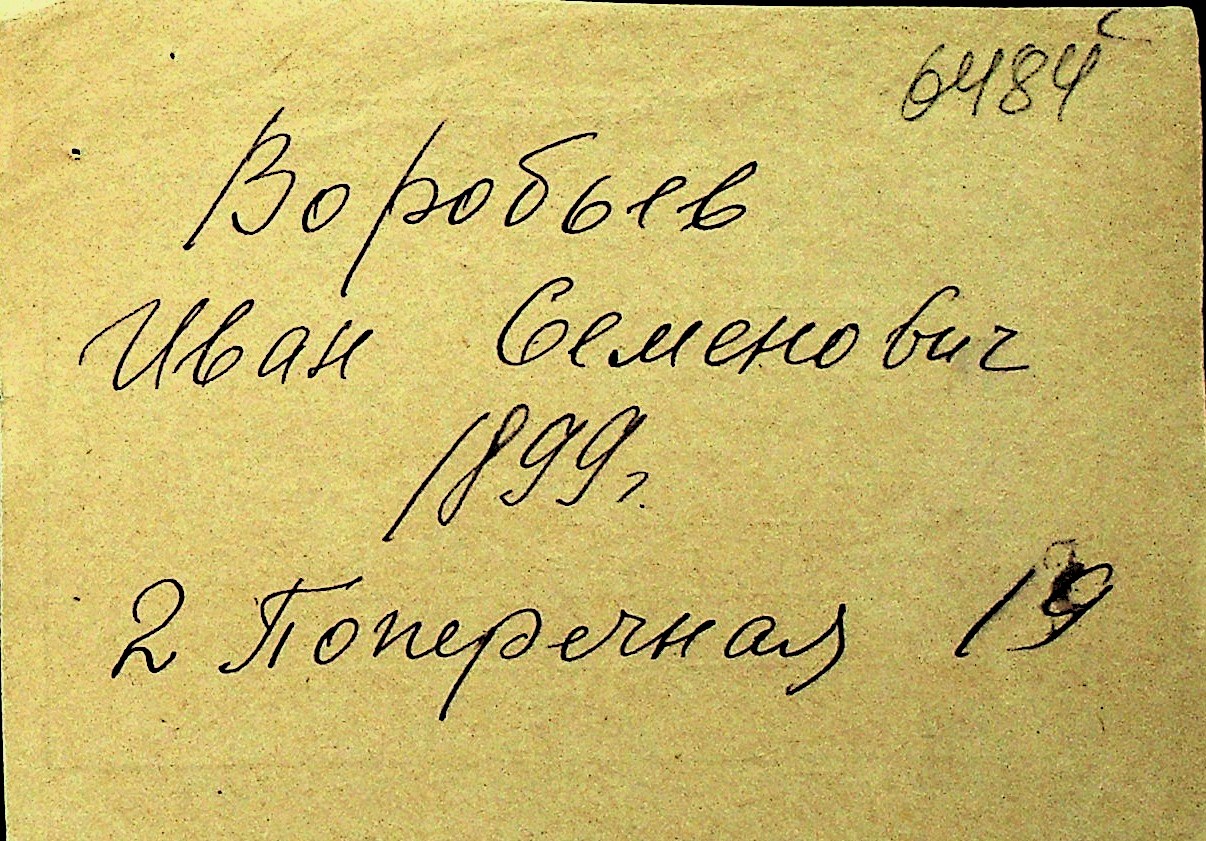 6484
Воробьев
Иван Семенович
1899г.
2 Поперечная 19